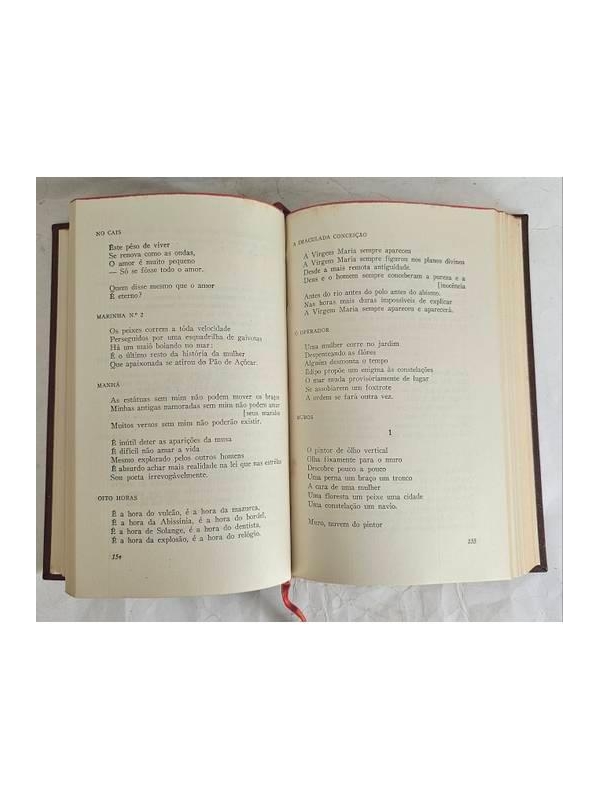 NO CAIS
Êste pêso de viver
Se renova como as ondas,
O amor é muito pequeno
— Só se fôsse todo o amor.
Quem disse mesmo que o amor
É eterno?
MARINHA N.º 2
Os peixes correm a tôda velocidade
Perseguidos por uma esquadrilha de gaivotas
Há um maiô boiando no mar:
É o último resto da história da mulher
Que apaixonada se atirou do Pão de Açúcar.
MANHÃ
As estátuas sem mim não podem mover os braços
Minhas antigas namoradas sem mim não podem amar
[seus maridos
Muitos versos sem mim não poderão existir.
É inútil deter as aparições da musa
É difícil não amar a vida
Mesmo explorado pelos outros homens
É absurdo achar mais realidade na lei que nas estrêlas
Sou poeta irrevogàvelmente.
OITO HORAS
É a hora do vulcão, é a hora da mazorca,
É a hora da Abissínia, é a hora do bordel,
É a hora de Solange, é a hora do dentista,
É a hora da explosão, é a hora do relógio.
154
A IMACULADA CONCEIÇÃO
A Virgem Maria sempre apareceu
A Virgem Maria sempre figurou nos planos divinos
Desde a mais remota antiguidade.
Deus e o homem sempre conceberam a pureza e a
[inocência
Antes do rio antes do polo antes do abismo.
Nas horas mais duras impossíveis de explicar
A Virgem Maria sempre apareceu e aparecerá.
O OPERADOR
Uma mulher corre no jardim
Despenteando as flôres
Alguém desmonta o tempo
Édipo propõe um enigma às constelações
O mar muda provisòriamente de lugar
Se assobiarem um foxtrote
A ordem se fará outra vez.
MUROS
1
O pintor de ôlho vertical
Olha fixamente para o muro
Descobre pouco a pouco
Uma perna um braço um tronco
A cara de uma mulher
Uma floresta um peixe uma cidade
Uma constelação um navio.
Muro, nuvem do pintor
155